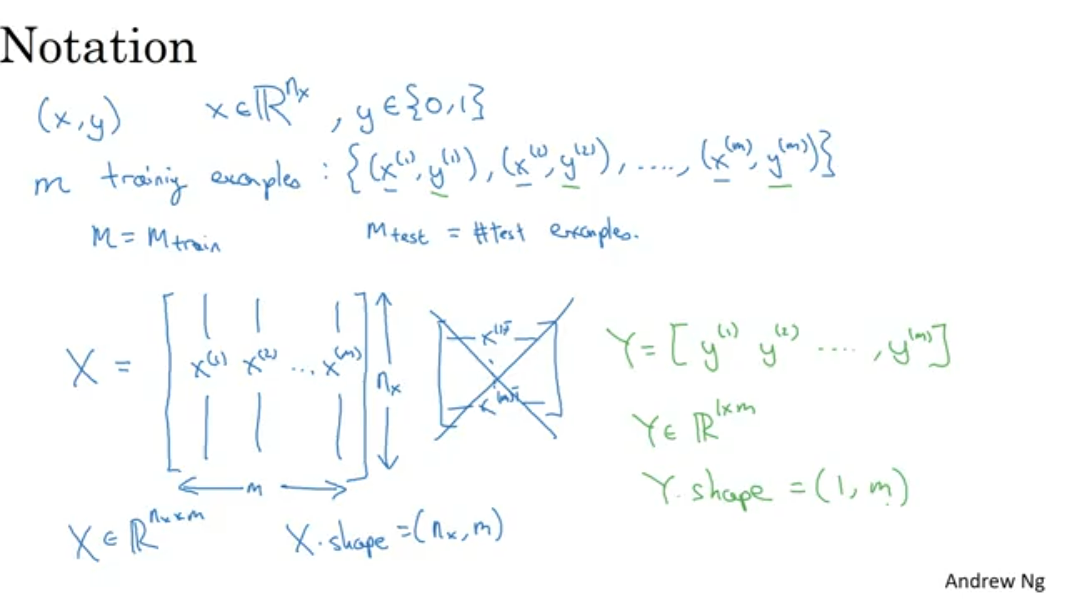 Notation
(x,y) x∈ℝ^{n_x}, y∈{0,1}
m training examples : {(x^{(1)}, y^{(1)}), (x^{(2)}, y^{(2)}), ...., (x^{(m)}, y^{(m)})}
M = M_{train} M_{test} = #test examples.
X = [x^{(1)} x^{(2)} ... x^{(m)}] n_x
m
x^{(1)T}
x^{(m)T}
Y = [y^{(1)} y^{(2)} .... , y^{(m)}]
Y∈ℝ^{1×m}
Y.shape = (1, m)
X∈ℝ^{n_x×m} X.shape = (n_x, m)
Andrew Ng